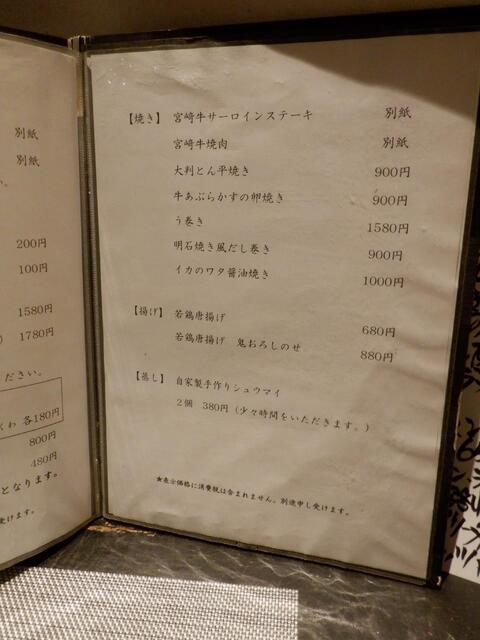 別紙
別紙
い。
200円
100円
1580円
1780円
ださい。
くわ 各180円
800円
480円
となります。
受けます。
【焼き】 宮崎牛サーロインステーキ 別紙
宮崎牛焼肉 別紙
大判とん平焼き 900円
牛あぶらかすの卵焼き 900円
う巻き 1580円
明石焼き風だし巻き 900円
イカのワタ醤油焼き 1000円
【揚げ】 若鶏唐揚げ 680円
若鶏唐揚げ 鬼おろしのせ 880円
【蒸し】 自家製手作りシュウマイ
2個 380円(少々時間をいただきます。)
★表示価格に消費税は含まれません。別途申し受けます。